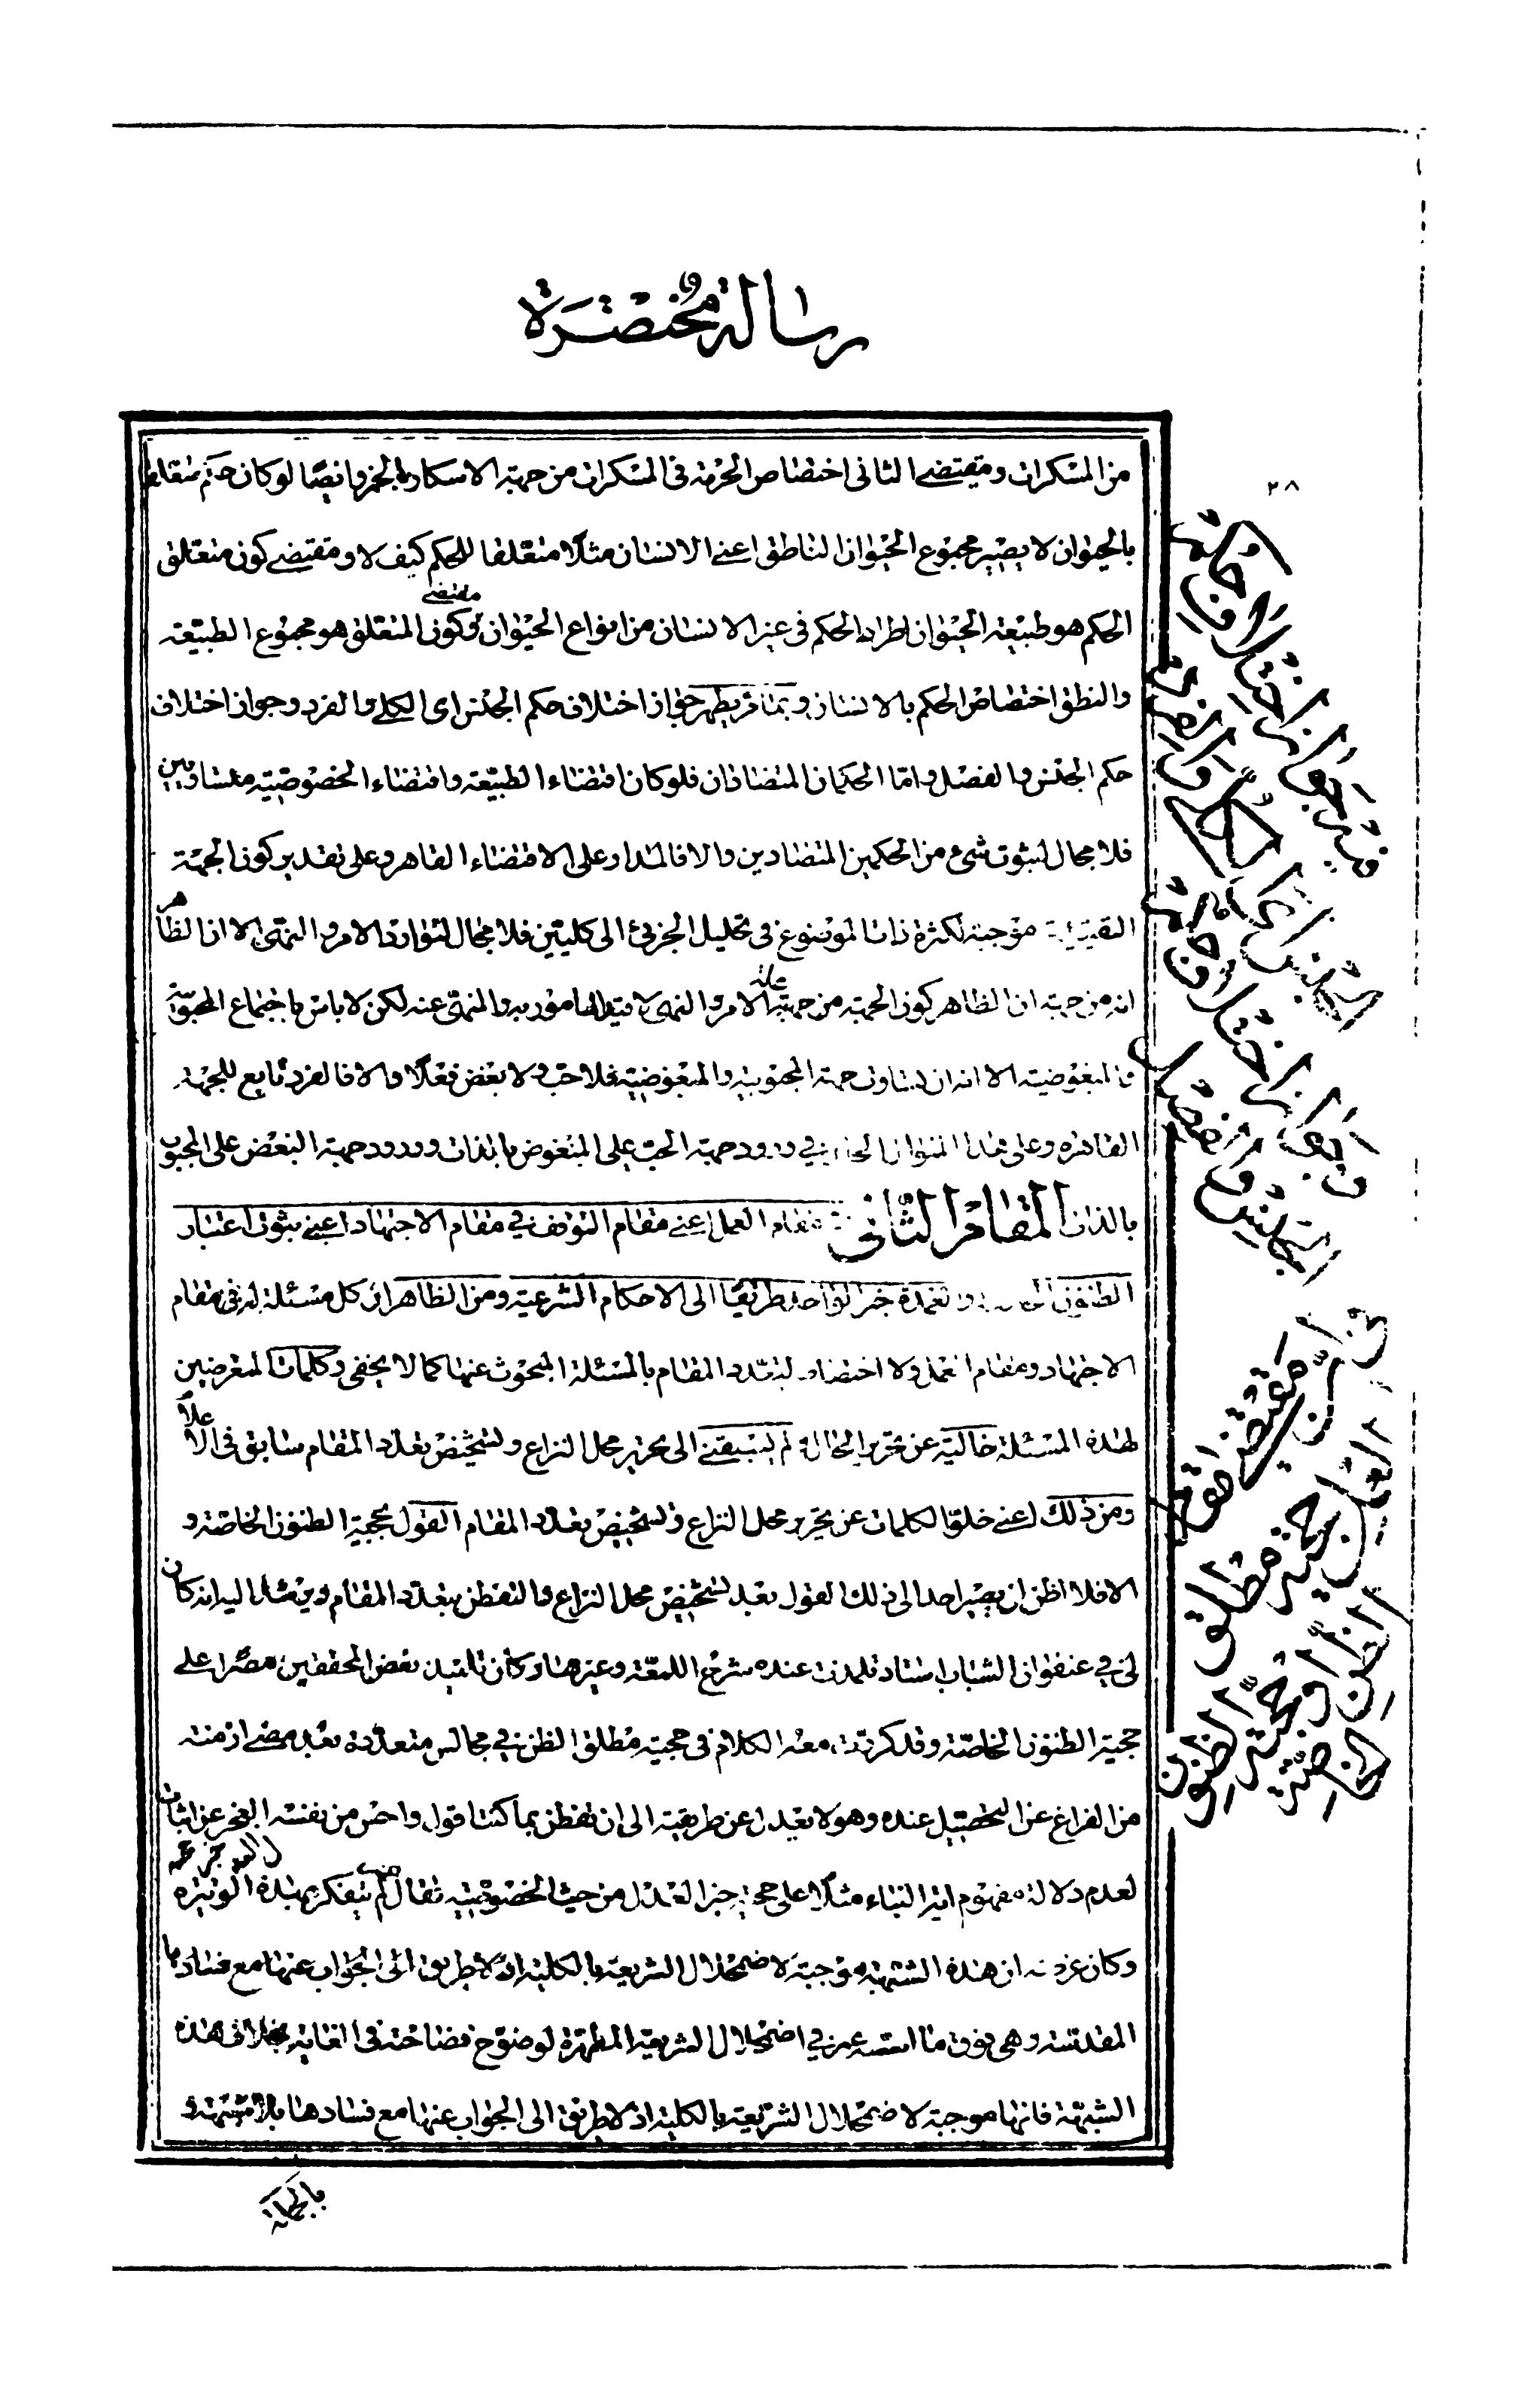 رسالة مختصرة
٢٨
من المسكرات ومقتضى الثانى اختصاص الحرمة فى المسكرات من جهة الاسكار بالخمر وايضًا لو كان حكم متعلقا
بالحيوان لا يصير مجموع الحيوان الناطق اعنى الانسان مثلًا متعلقا للحكم كيف لا ومقتضى كون متعلق
الحكم هو طبيعة الحيوان اطراد الحكم فى غير الانسان من انواع الحيوان ومقتضى كون المتعلق هو مجموع الطبيعة
والنطق اختصاص الحكم بالانسان وبما مر يظهر جواز اختلاف حكم الجنس اى الكلى والفرد وجواز اختلاف
حكم الجنس والفصل واما الحكمان المتضادان فلو كان اقتضاء الطبيعة واقتضاء الخصوصية متساويين
فلا مجال لثبوت شىء من الحكمين المتضادين والا فالمدار على الاقتضاء القاهر وعلى تقدير كون الجهة
التقييدية موجبة لكثرة ذات الموضوع فى تحليل الجزئى الى كليتين فلا مجال لتوارد الامر والنهى الا ان الظاهر
انه من جهة ان الظاهر كون الجهة من جهة علة الامر والنهى لا قيدا للمامور به والمنهى عنه لكن لا باس باجتماع المحبوبية
والمبغوضية الا انه ان تساوى جهة المحبوبية والمبغوضية فلا حب ولا بغض فعلًا والا فالفرد تابع للجهة
القاهرة وعلى هذا المنوال الحال فى ورود جهة الحب على المبغوض بالذات وورود جهة البغض على المحبوب
بالذات المقام الثانى مقام العمل اعنى مقام التوقف فى مقام الاجتهاد اعنى ثبوت اعتبار
الظنون الخاصة والعمدة خبر الواحد طريقًا الى الاحكام الشرعية ومن الظاهر ان كل مسئلة له فى مقام
الاجتهاد ومقام العمل ولا اختصاص لتعدد المقام بالمسئلة المبحوث عنها كما لا يخفى وكلمات المتعرضين
لهذه المسئلة خالية عن تحرير الحال لم يسبقنى الى تحرير محل النزاع وتشخيص تعدد المقام سابق فى الاعلام
ومن ذلك اعنى خلو الكلمات عن تحرير محل النزاع وتشخيص تعدد المقام القول بحجية الظنون الخاصة و
الا فلا اظن ان يصير احد الى ذلك القول بعد تشخيص محل النزاع والتفطن بتعدد المقام ويرشد اليه انه كان
لى فى عنفوان الشباب استاد تلمذت عنده شرح اللمعة وغيرها وكان تلميذ بعض المحققين مصرّا على
حجية الظنون الخاصة وقد كررت معه الكلام فى حجية مطلق الظن فى مجالس متعددة بعد مضى ازمنة
من الفراغ عن التحصيل عنده وهو لا يعدل عن طريقته الى ان تفطن بما كنت اقول واحس من نفسه العجز عن اثبات
لعدم دلالة مفهوم اية النباء مثلًا على حجية خبر العدل من حيث الخصوصية فقال لم يتفكر بهذه الوتيرة
وكان غرضه ان هذه الشبهة موجبة لاضمحلال الشريعة بالكلية اذ لا طريق الى الجواب عنها مع فسادها
المقدسة وهى فوق ما اسسه فى اضمحلال الشريعة المطهرة لوضوح فضاحته فى الغاية بخلاف هذه
الشبهة فانها موجبة لاضمحلال الشريعة بالكلية اذ لا طريق الى الجواب عنها مع فسادها بلا شبهة و
بالجملة
فى جواز اختلاف حكم
الكلى والفرد
الجنس
وجواز اختلاف حكم
الجنس والفصل
فى ان مقتضى
القول حجية مطلق
الظن او حجية الظنون
الخاصة